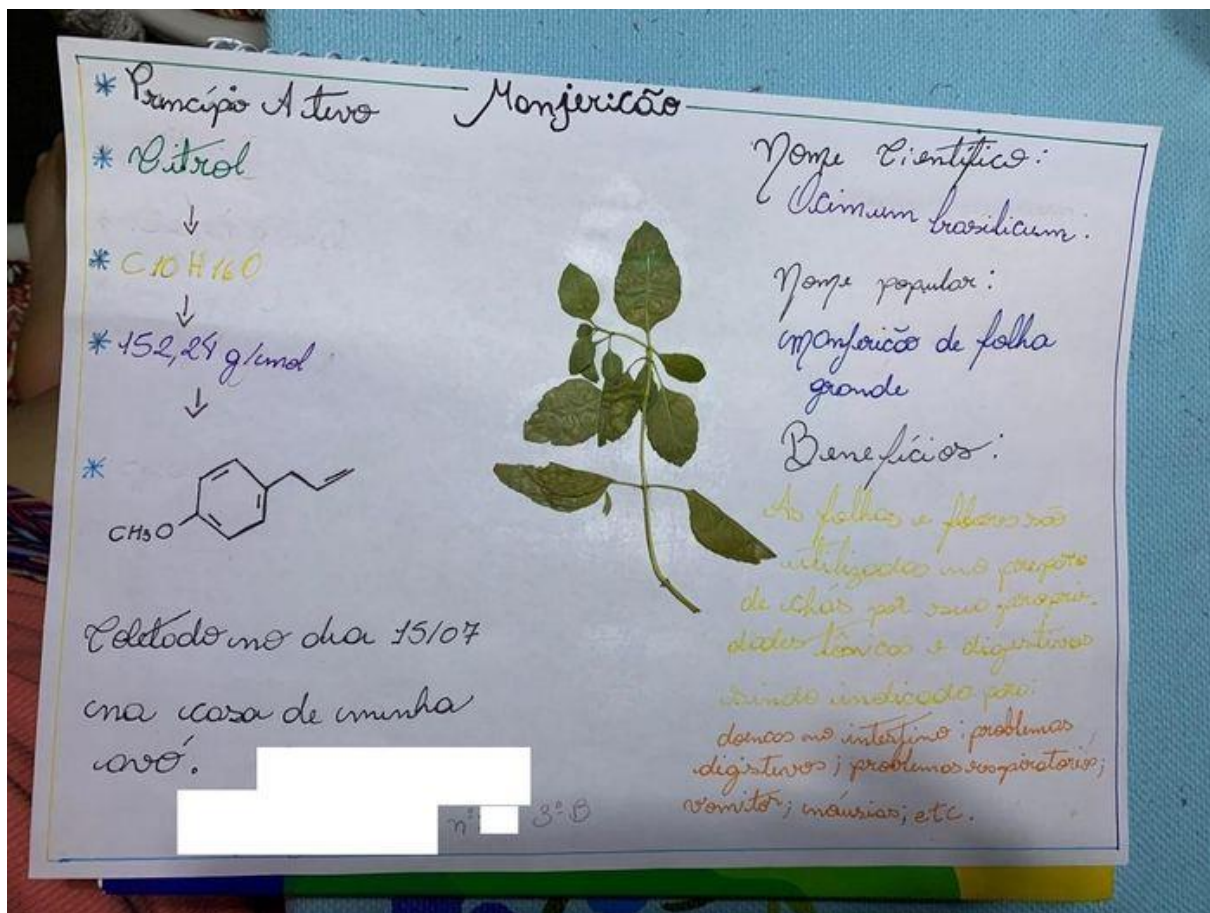 Manjericão
* Princípio Ativo
* Citrol
* C10H16O
* 152,24 g/mol
*
CH3O
Coletado no dia 15/07
na casa de minha
avó.
nº 3º B
Nome Científico:
Ocimum brasilicum.
Nome popular:
manjericão de folha
grande
Benefícios:
As folhas e flores são
utilizadas no preparo
de chás por suas proprie-
dades tônicas e digestivas
sendo indicado para:
doenças no intestino; problemas
digistivos; problemas respiratórios;
vomitos; náusias; etc.